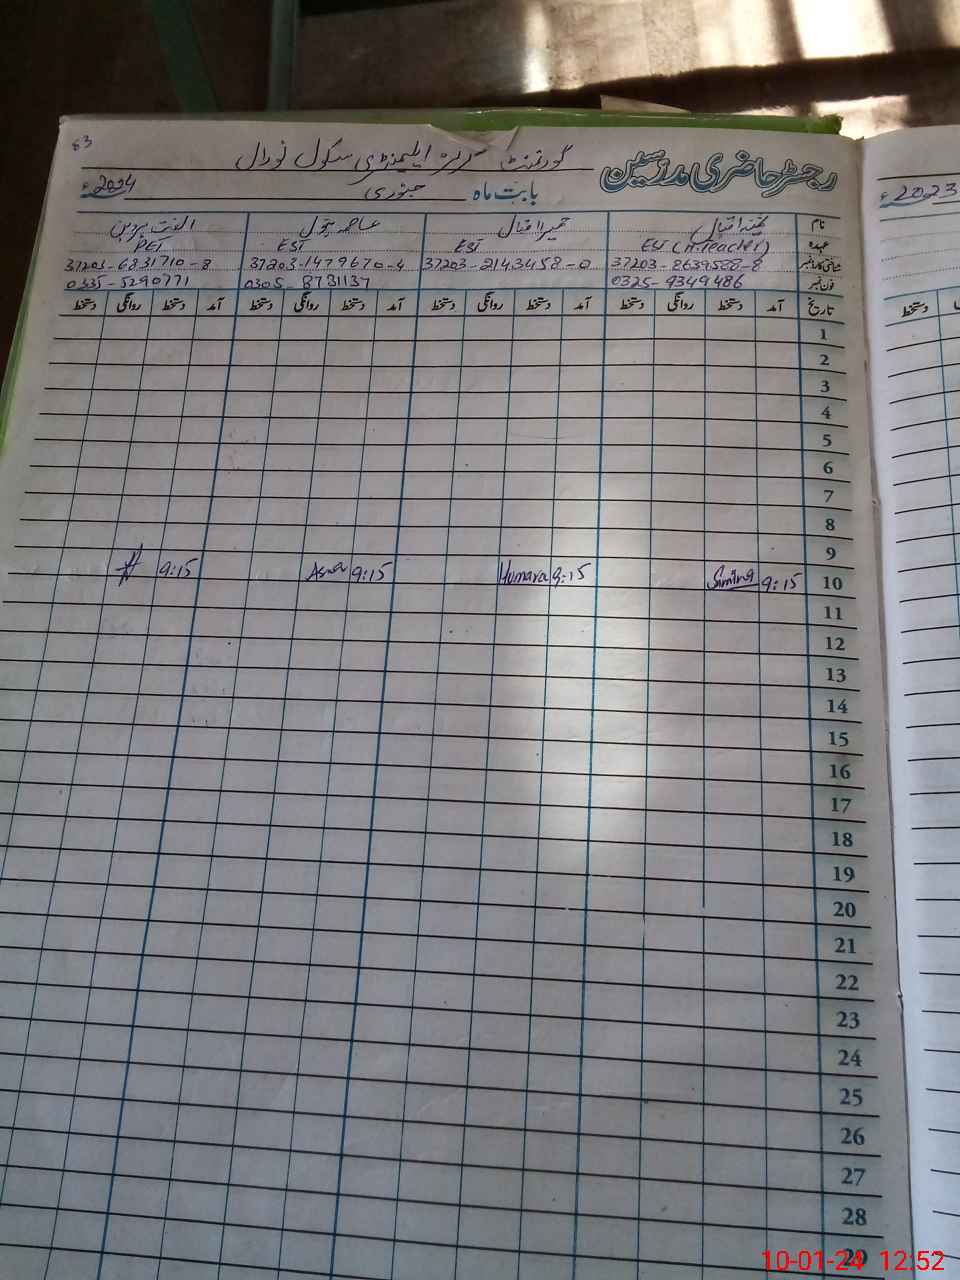 63
رجسٹر حاضری مدرسین گورنمنٹ گرلز ایلیمنٹری سکول نورال
بابت ماہ جنوری 2024ء
نام اقبال حمیرا اقبال عاصمہ بتول الفت پروین
عہدہ EST (H.Teacher) EST EST PET
شناختی کارڈ نمبر 37203-8639588-8 37203-2143458-0 37203-1479670-4 37203-6831710-8
فون نمبر 0325-9349486 0305-8731137 0335-5290771
تاریخ آمد دستخط روانگی دستخط آمد دستخط روانگی دستخط آمد دستخط روانگی دستخط آمد دستخط روانگی دستخط
1
2
3
4
5
6
7
8
9
10 9:15 9:15 Humara 9:15 Asma 9:15
11
12
13
14
15
16
17
18
19
20
21
22
23
24
25
26
27
28
29
2023ء
دستخط
10-01-24 12:52